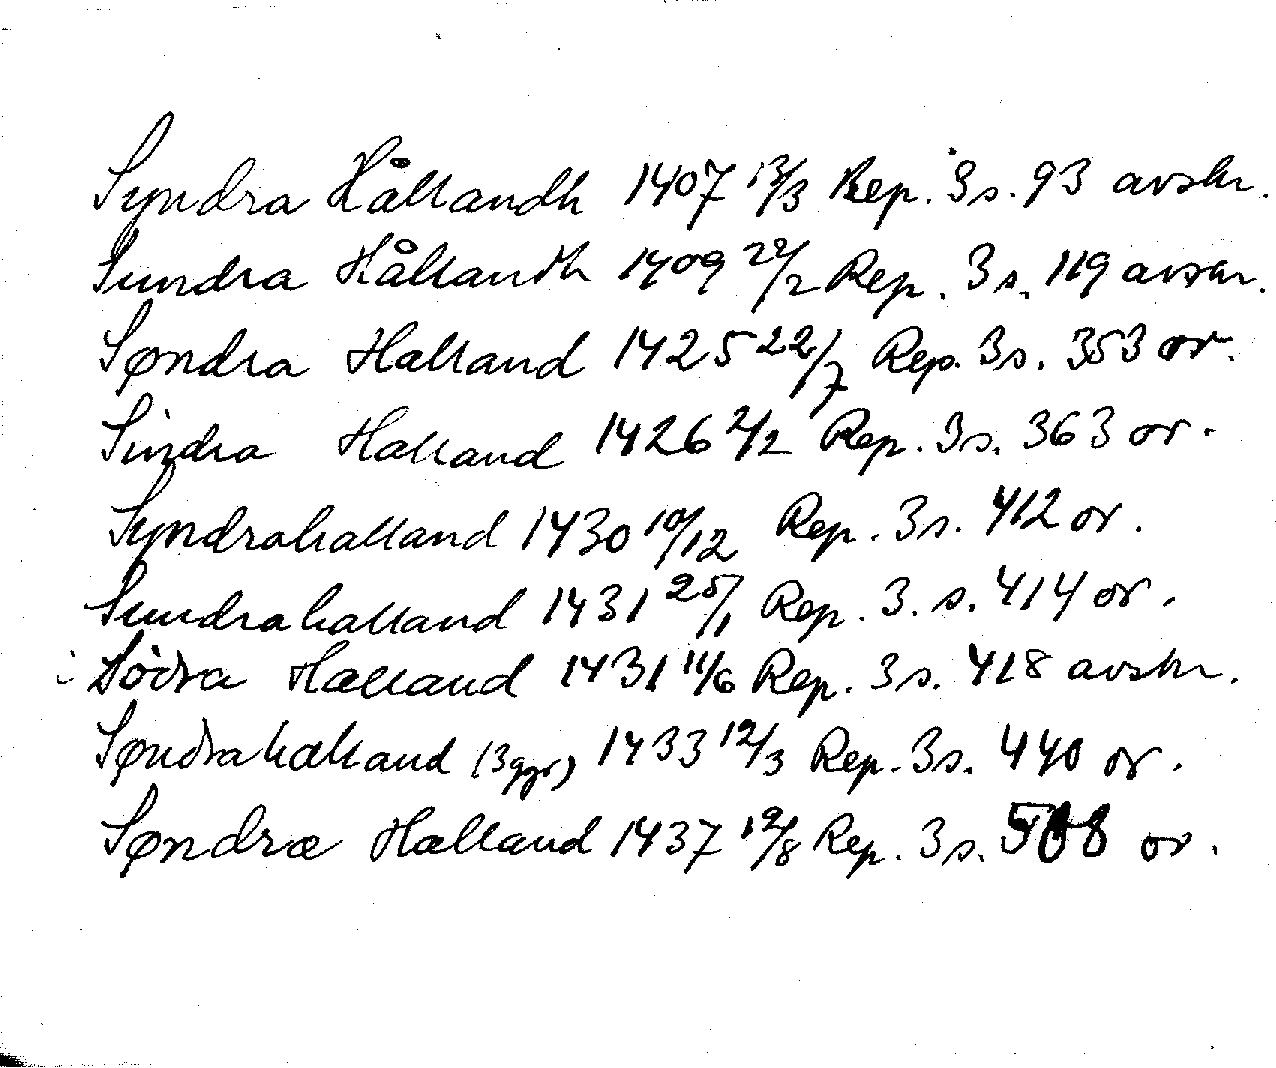 Syndra Hållandh 1407 13/3 Rep. 3 s. 93 avskr.
Sundra Hållandh 1409 22/2 Rep. 3 s. 119 avskr.
Søndra Halland 1425 22/7 Rep. 3 s. 353 or.
Sindra Halland 1426 2/2 Rep. 3 s. 363 or.
Syndrahalland 1430 10/12 Rep. 3 s. 412 or.
Sundrahalland 1431 25/1 Rep. 3. s. 414 or.
i Södra Halland 1431 11/6 Rep. 3 s. 418 avskr.
Søndrahalland (3 ggr) 1433 12/3 Rep. 3 s. 440 or.
Søndræ Halland 1437 19/8 Rep. 3 s. 508 or.